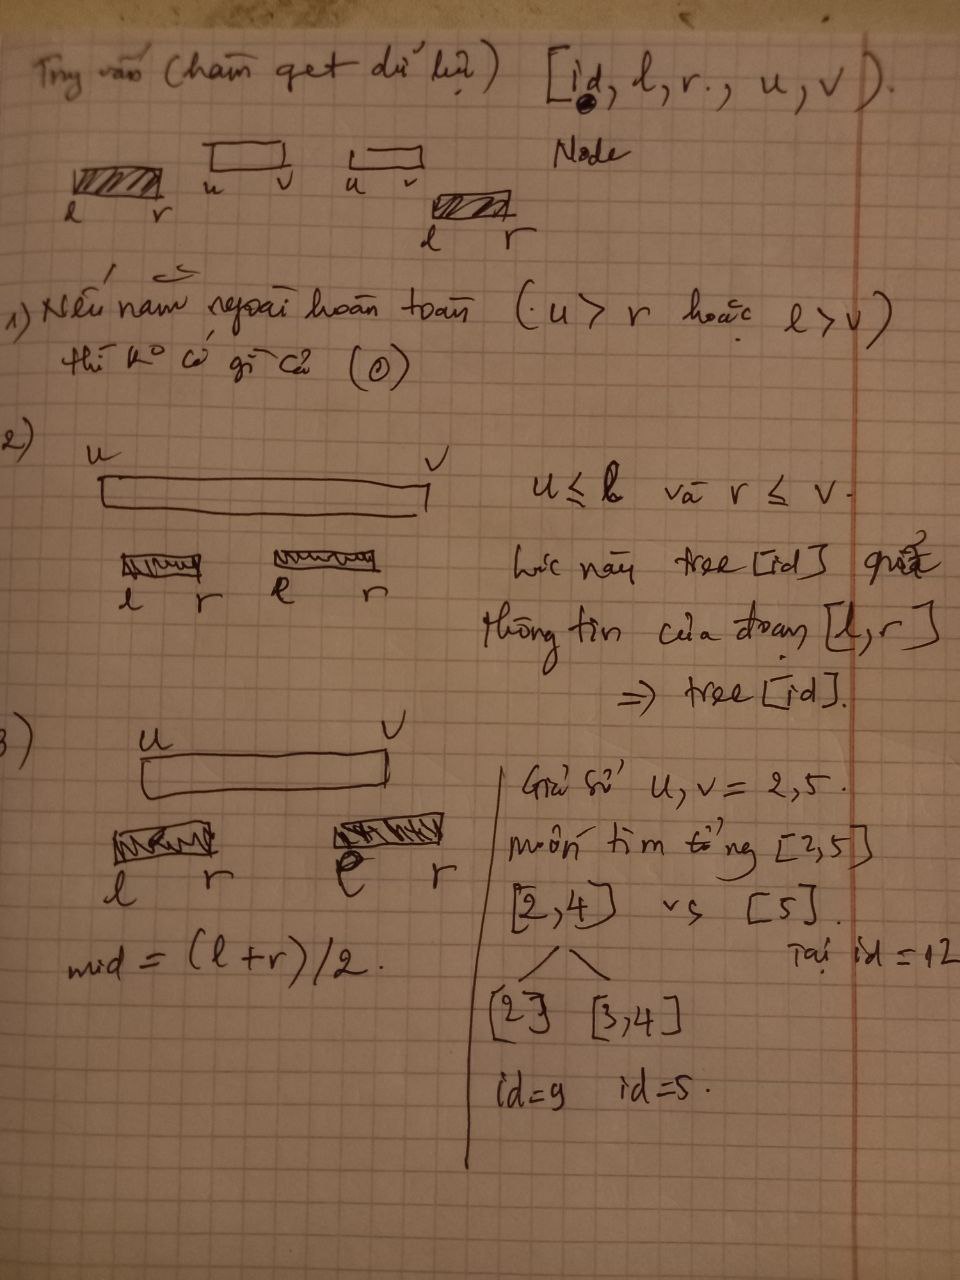 Truy vấn (hàm get dữ liệu) [id, l, r, u, v).
Node
u v u v
l r
l r
1) Nếu nằm ngoài hoàn toàn (u > r hoặc l > v)
thì ko có gì cả (0)
2)
u v
u ≤ l và r ≤ v.
l r l r
Lúc này tree [id] quản
thông tin của đoạn [l, r]
=> tree [id].
3)
u v
Giả sử u, v = 2, 5.
muốn tìm tổng [2,5]
l r l r
[2,4] vs [5].
mid = (l + r)/2.
Tại id = 12
[2] [3,4]
id=9 id=5.